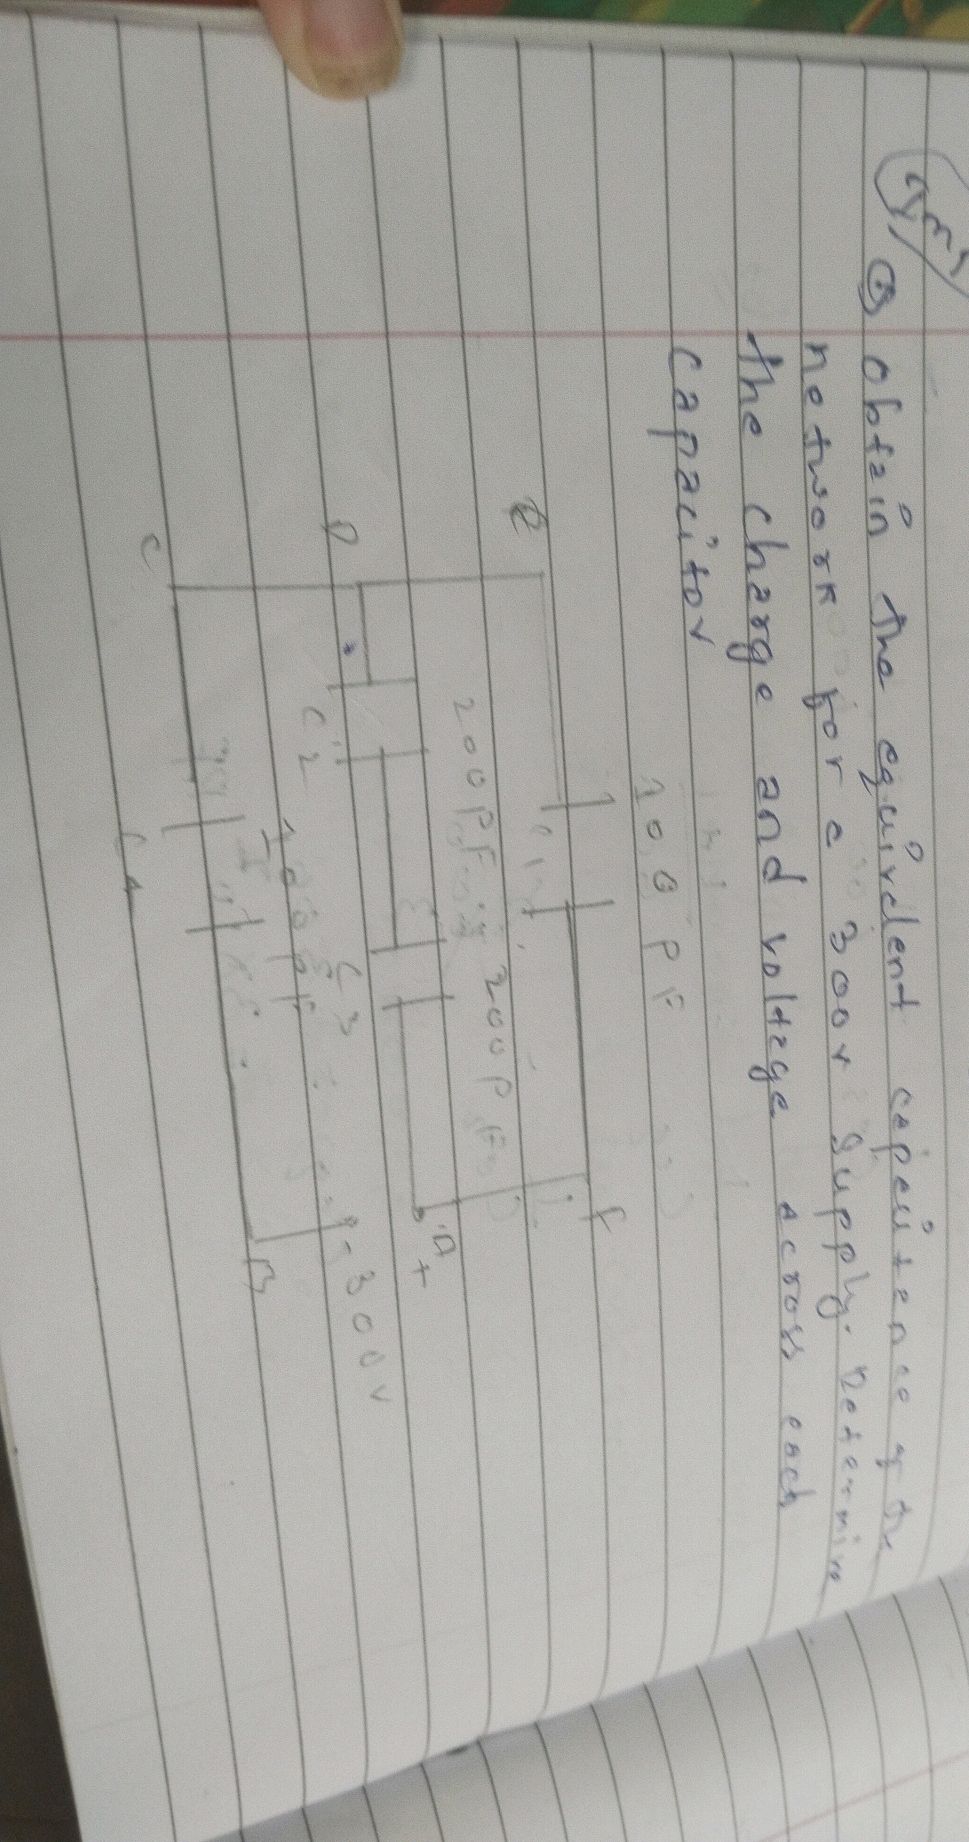 ③ obtain the equivalent capacitance of the
network for a 300v supply. Determine
the charge and voltage across each
capacitor
100 PF
E
F
200PF
200PF
D
A
+
C2
C3
- 300V
100PF
C
B
C4